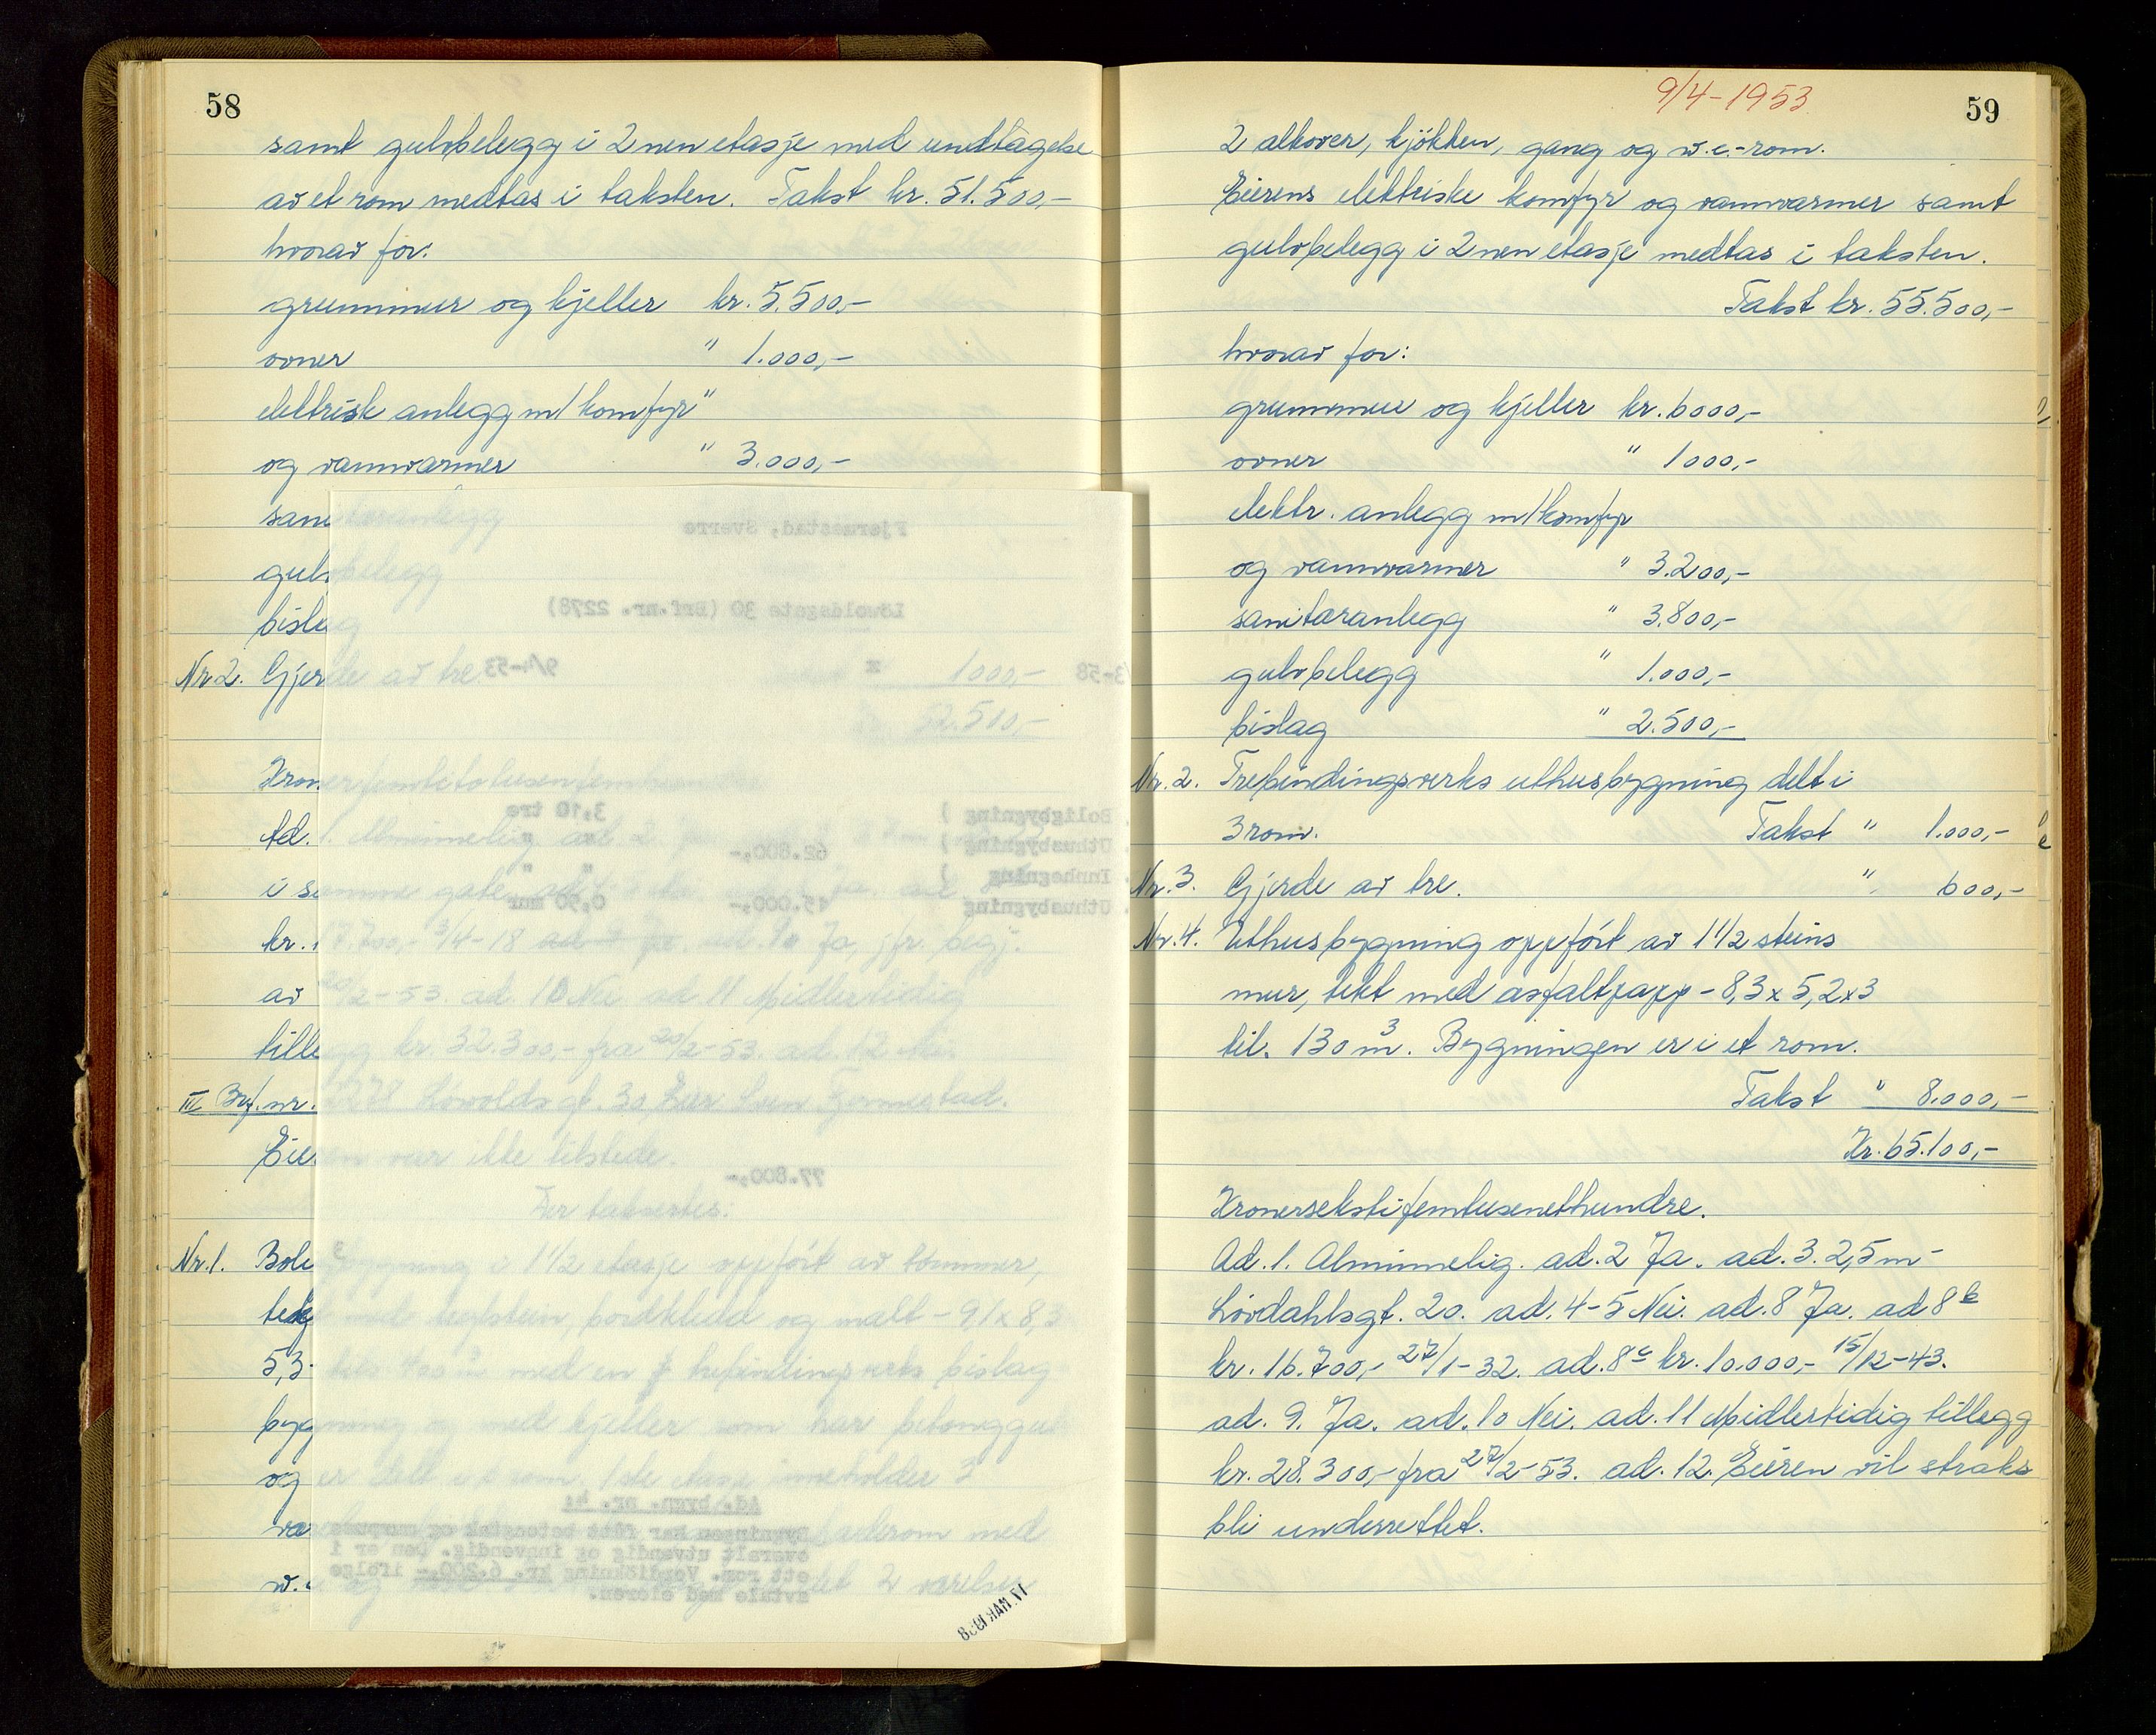 58
samt gulvbelegg i 2nen etasje med undtagelse
av et rom medtas i taksten. Takst kr. 51.500,-
hvorav for:
grunnmur og kjeller kr. 5.500,-
ovner " 1.000,-
elektrisk anlegg m/komfyr "
og vannvarmer " 3.000,-
sanitæranlegg
gulvbelegg
bislag
Nr 2. Gjerde av tre. 1000,-
52.500,-
Kronerfemtitotusenfem
Ad. 1. Almindelig ad. 2
i samme gate. ad.
kr. 17.700,- 3/4-18 ad. 10 Ja, jfr. begj.
av 20/2-53. ad. 10 Nei ad. 11 Midlertidig
tillegg kr. 32.300,- fra 20/2-53. ad. 12 Nei.
III Brf.nr. 2278 Løvoldsgt. 30, Eier Fjermestad.
Eieren var ikke tilstede.
Her takseredes:
Nr. 1. Bolebygning i 1 1/2 etasje oppført av tømmer,
tekt med teglstein, bordkledd og malt - 9,1 x 8,3
5,3 til. 400 m3 med en trebindingsverks bislag
bygning og med kjeller som har betonggulv
og er delt i rom. 1ste etasje inneholder 3
baderom med
w. og 2 værelser
Fjermestad, Sverre
Løwoldsgate 30 (Brf.nr. 2278)
9/4-53
3-58
Boligbygning )
Uthusbygning )
Innhegning )
Uthusbygning
3,10 tre
62.800,-
0,90 mur
15.000,-
77.800,-
Ad. bygn. nr. 4:
Bygningen har fått betongtak og murpuss
overalt utvendig og innvendig. Den er i
ett rom. Verdiökning kr. 6.200,- ifölge
avtale med eieren.
17 MAR 1958
9/4-1953
59
2 alkover, kjøkken, gang og w.c.-rom.
Eierens elektriske komfyr og vannvarmer samt
gulvbelegg i 2nen etasje medtas i taksten.
Takst kr. 55.500,-
hvorav for:
grunnmur og kjeller kr. 6000,-
ovner " 1000,-
elektr. anlegg m/komfyr
og vannvarmer " 3.200,-
sanitæranlegg " 3.800,-
gulvbelegg " 1.000,-
bislag " 2.500,-
Nr. 2. Trebindingsverks uthusbygning delt i
3 rom. Takst " 1.000,-
Nr. 3. Gjerde av tre. " 600,-
Nr. 4. Uthusbygning oppført av 1 1/2 steins
mur, tekt med asfaltpapp - 8,3 x 5,2 x 3
til. 130 m3. Bygningen er i et rom.
Takst " 8.000,-
Kr. 65.100,-
Kronersekstifemtusenethundre.
Ad. 1. Alminnelig. ad. 2 Ja. ad. 3. 2,5 m -
Løvdahlsgt. 20. ad. 4-5 Nei. ad. 8 Ja. ad 8 b
kr. 16.700,- 27/1-32. ad. 8 c kr. 10.000,- 15/12-43.
ad. 9. Ja. ad. 10 Nei. ad. 11 Midlertidig tillegg
kr. 28.300,- fra 27/2-53. ad. 12. Eieren vil straks
bli underrettet.